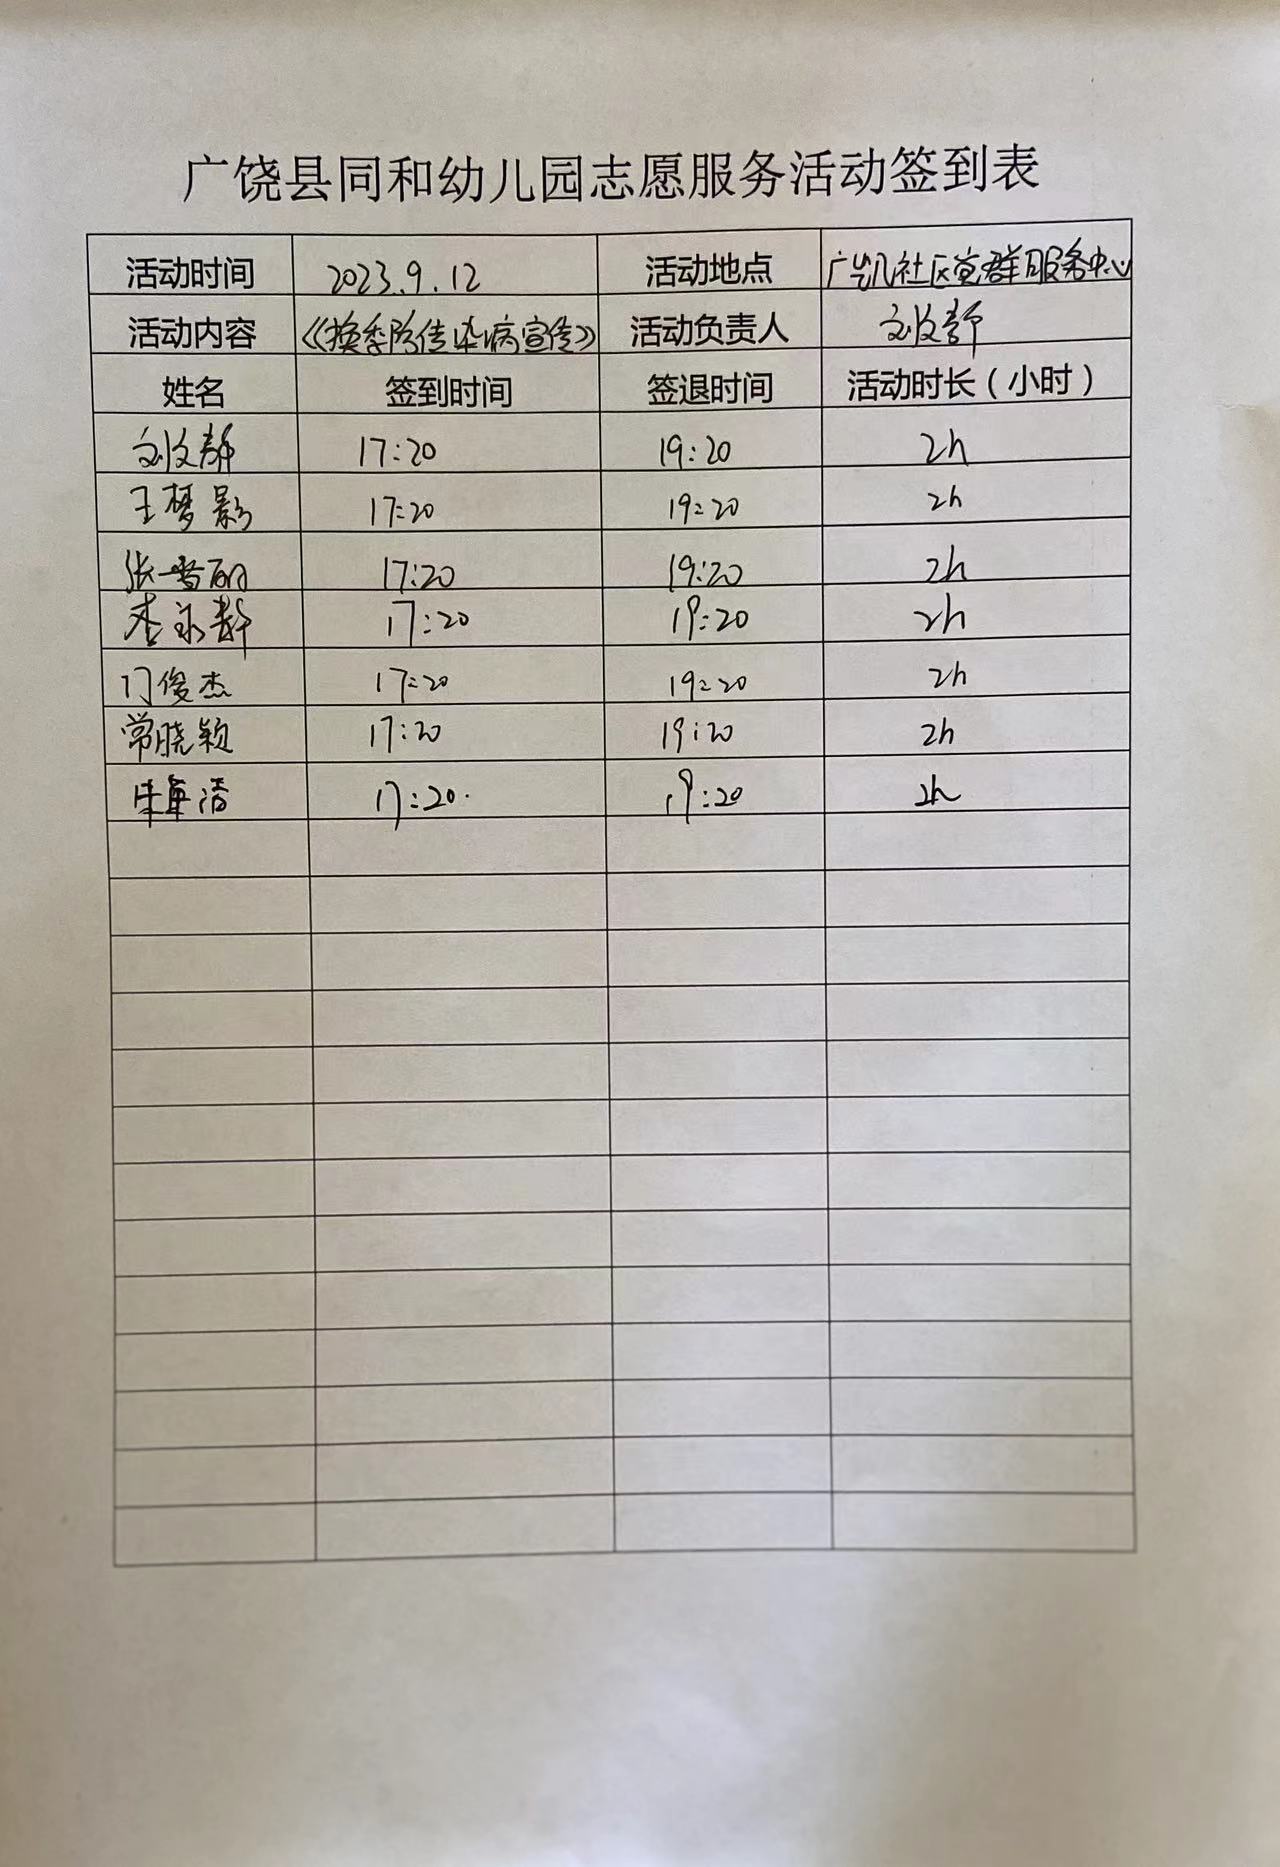 广饶县同和幼儿园志愿服务活动签到表
活动时间 2023.9.12 活动地点 广凯社区党群服务中心
活动内容 《换季防传染病宣传》 活动负责人 刘文静
姓名 签到时间 签退时间 活动时长（小时）
刘文静 17:20 19:20 2h
王梦影 17:20 19:20 2h
张 丽 17:20 19:20 2h
李 静 17:20 19:20 2h
门俊杰 17:20 19:20 2h
常晓颖 17:20 19:20 2h
17:20. 19:20 2h